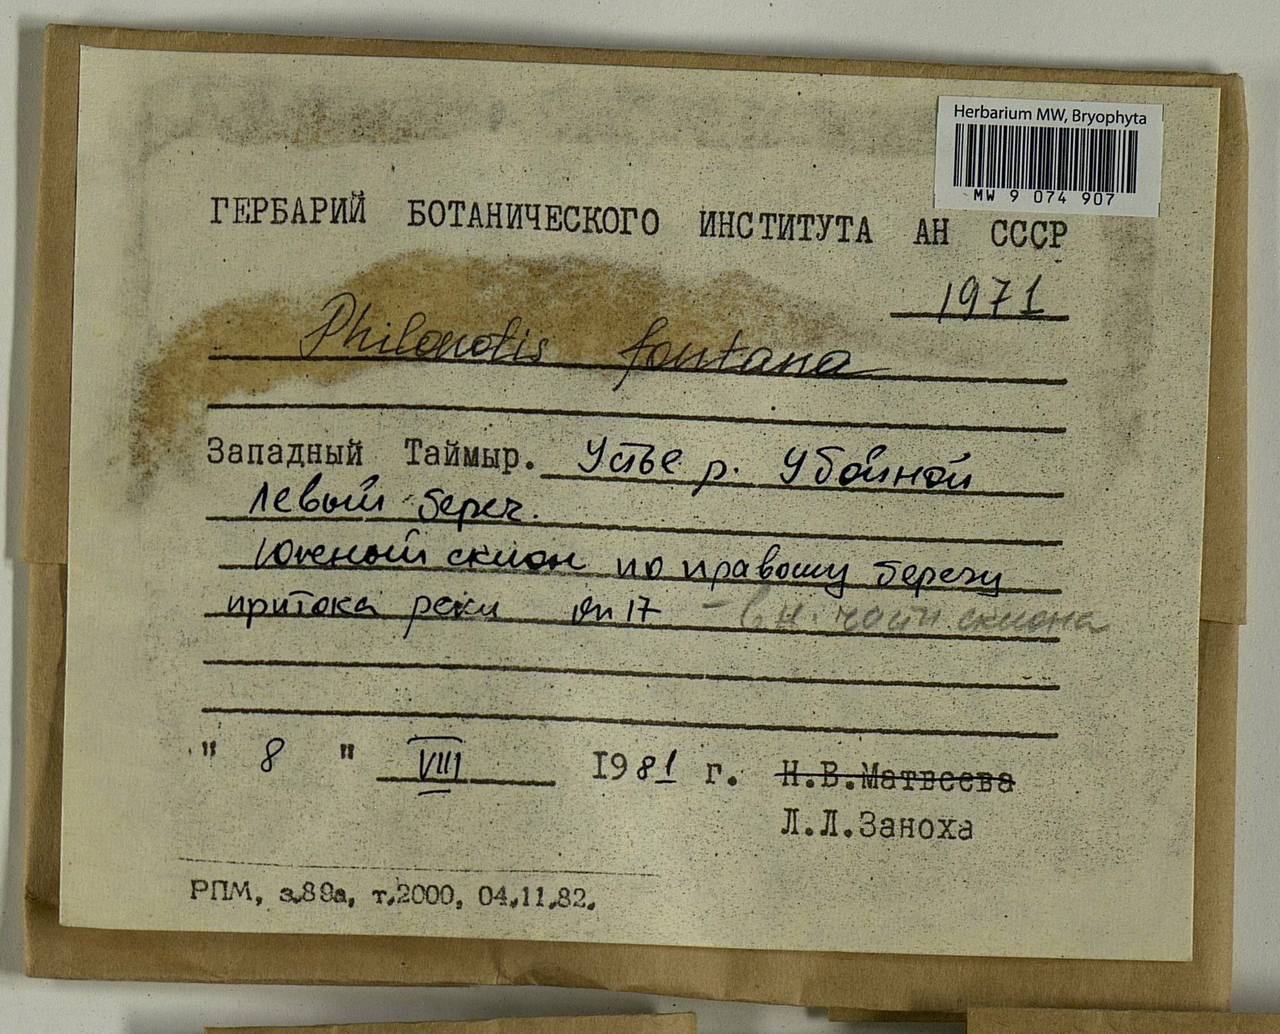 Herbarium MW, Bryophyta
MW 9 074 907
ГЕРБАРИЙ БОТАНИЧЕСКОГО ИНСТИТУТА АН СССР
1971
Philonotis fontana
Западный Таймыр. Устье р. Убойной
левый берег.
Южный склон по правому берегу
притока реки оп 17 – в н. части склона
" 8 " VIII 1981 г. Н.В.Матвеева
Л.Л.Заноха
РПМ, з.89а, т.2000, 04.11.82.